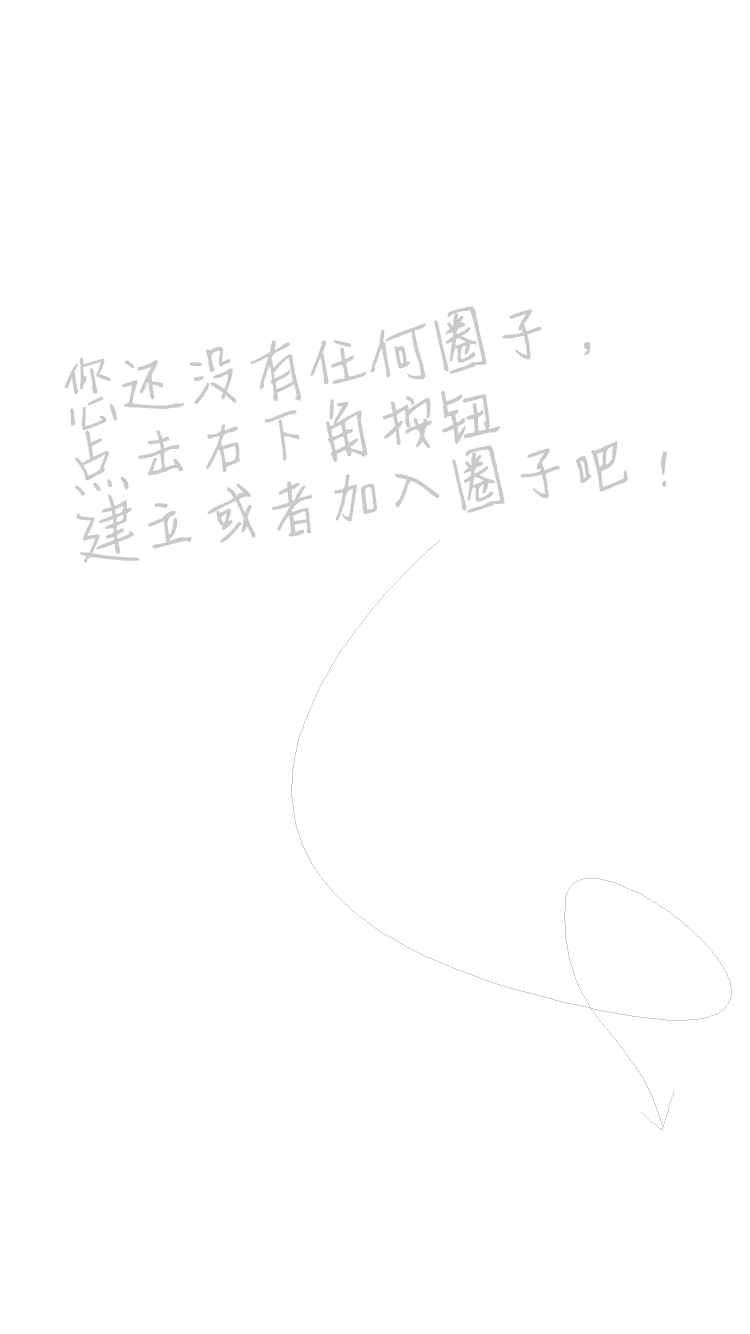 您还没有任何圈子，
点击右下角按钮
建立或者加入圈子吧！